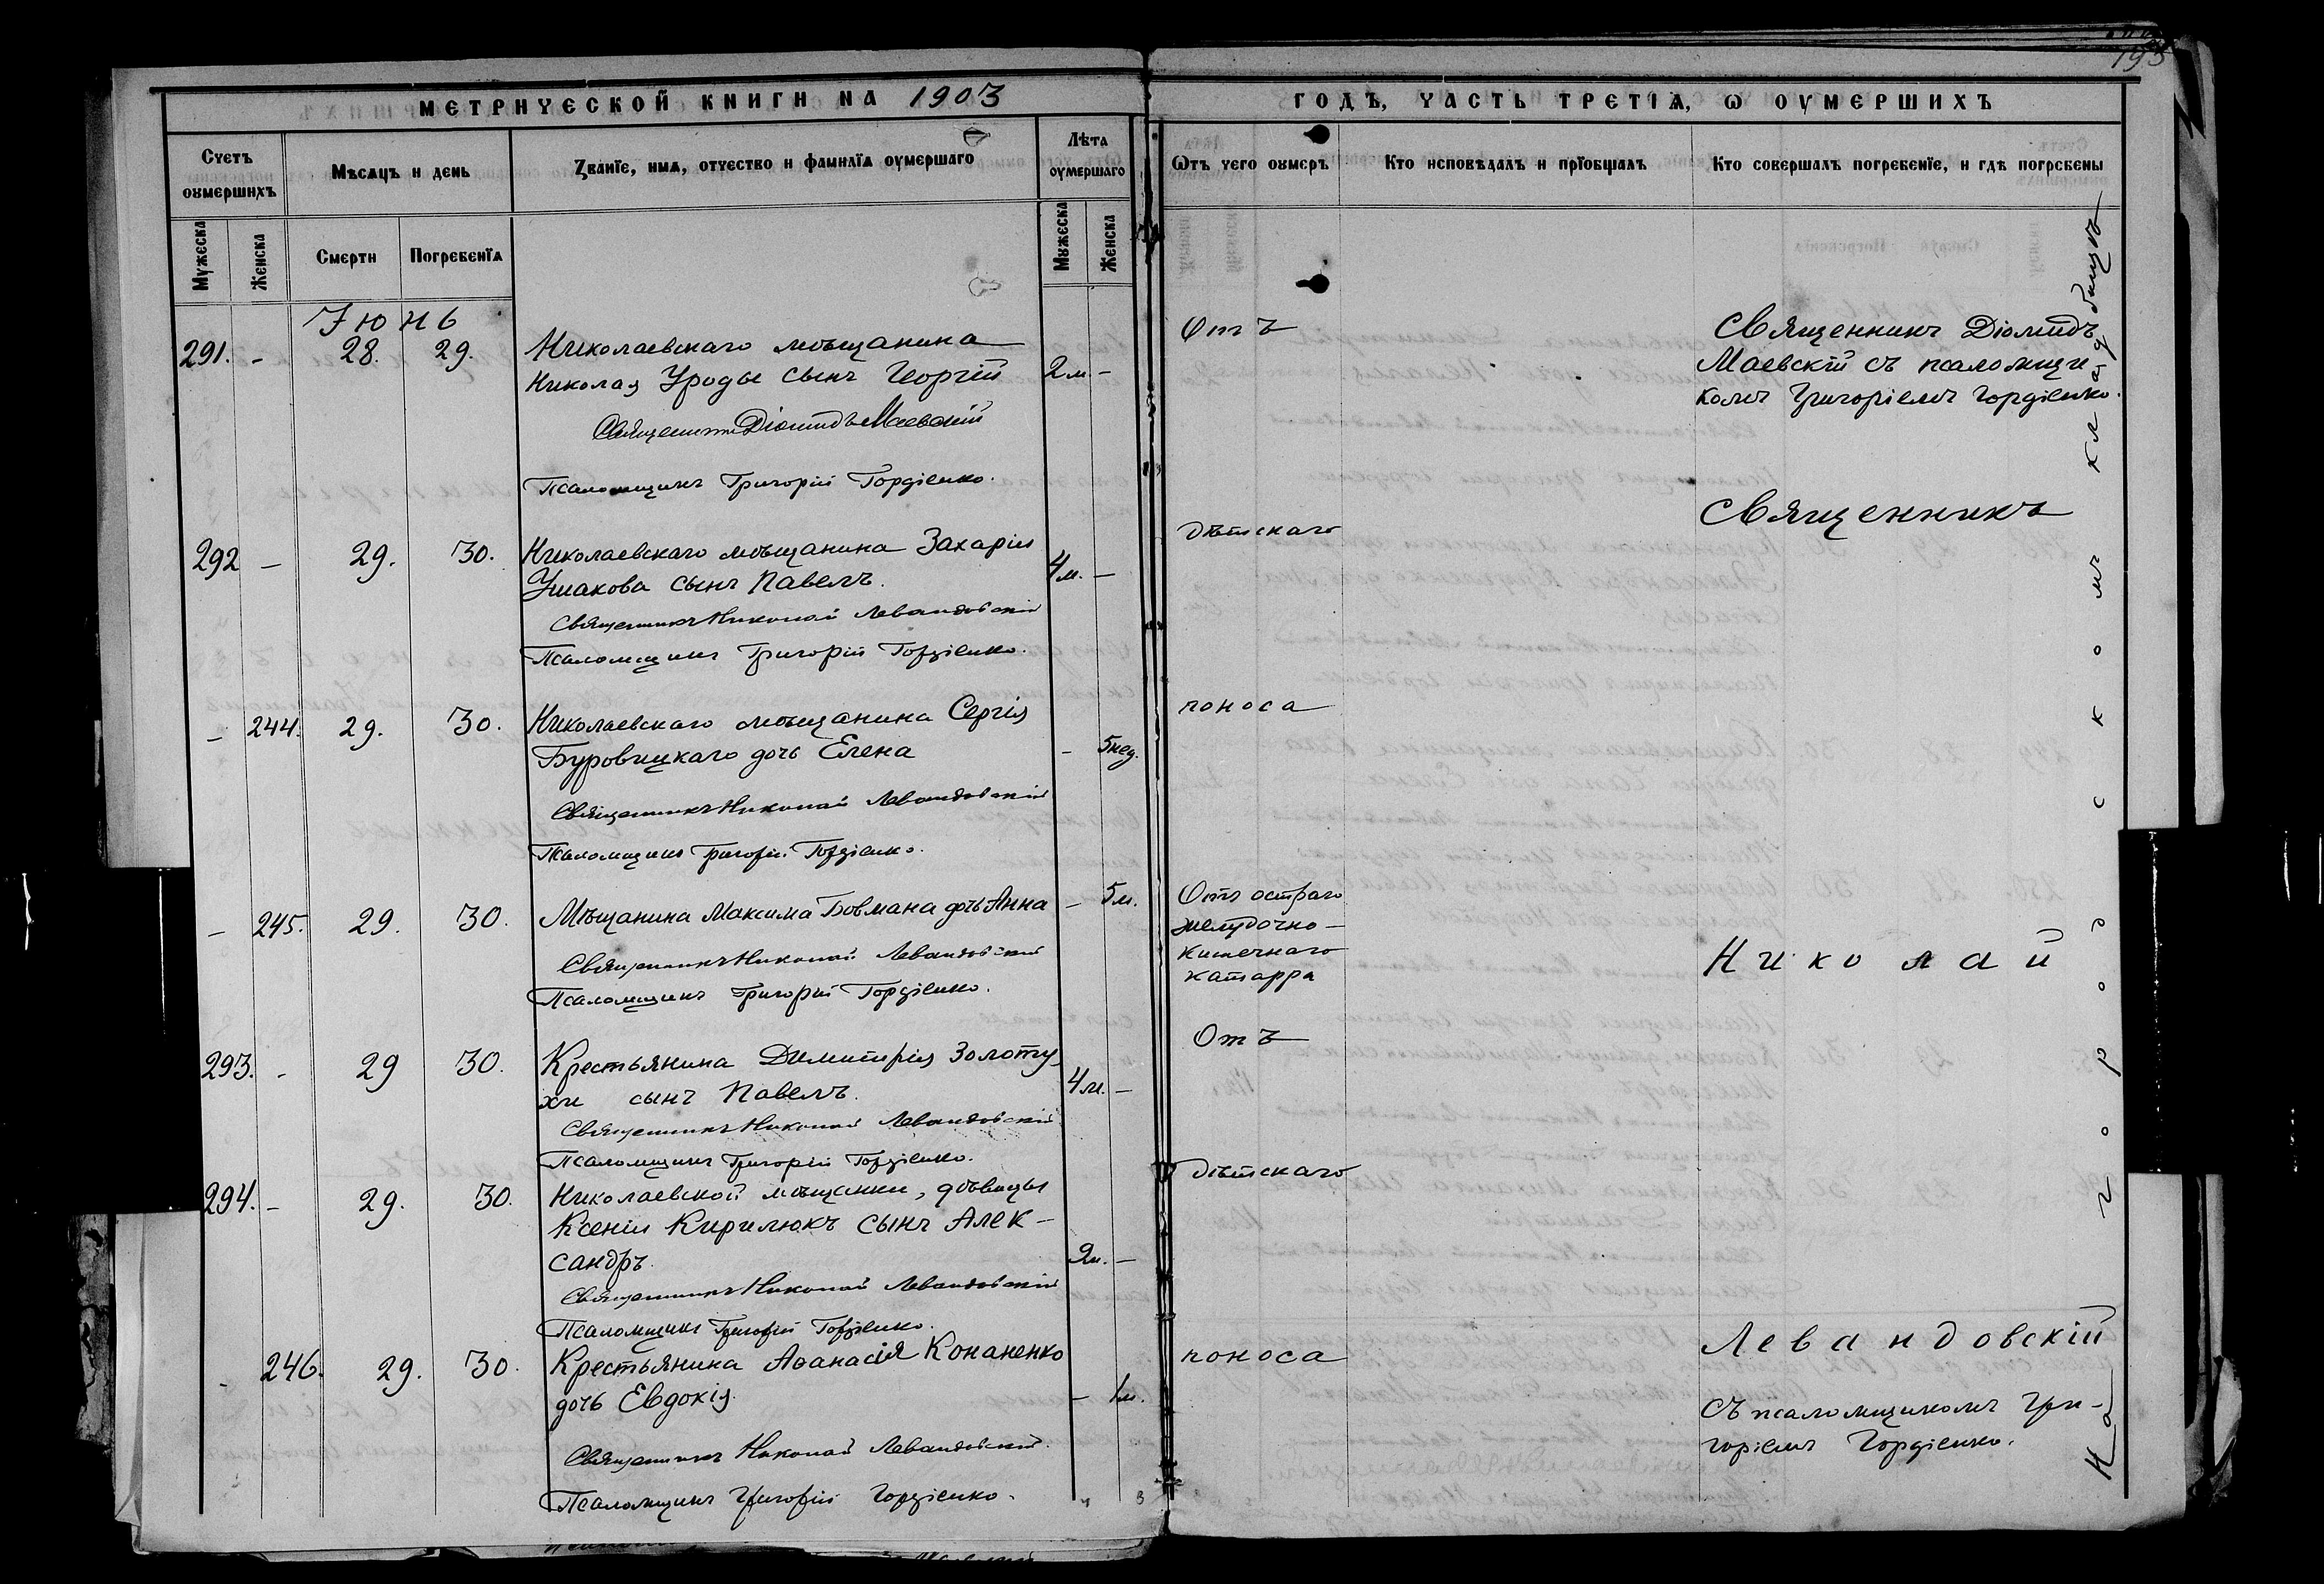 193
МЕТРИЧЕСКОЙ КНИГИ НА 1903
ГОДЪ, ЧАСТЬ ТРЕТІѦ, Ѡ ОУМЕРШИХЪ
Счетъ оумершихъ
Мѣсѧцъ и день
Званїе, имѧ, отчество и фамилїѧ оумершаго
Лѣта оумершаго
Ѿтъ чего оумеръ
Кто исповѣдалъ и прїобщалъ
Кто совершалъ погребенїе, и гдѣ погребены
Мужеска
Женска
Смерти
Погребенїѧ
Мужеска
Женска
Іюнь
291. - 28. 29. Николаевскаго мѣщанина
Николая Уроды сынъ Георгій 2 м. -
Священникъ Діомидъ Маевскій
Псаломщикъ Григорій Гордіенко.
292 - 29. 30. Николаевскаго мѣщанина Захарія
Ушакова сынъ Павелъ. 4 м. -
Священникъ Николай Левандовскій
Псаломщикъ Григорій Гордіенко.
- 244. 29. 30. Николаевскаго мѣщанина Сергія
Буровицкаго дочь Елена - 5 нед.
Священникъ Николай Левандовскій
Псаломщикъ Григорій Гордіенко.
- 245. 29. 30. Мѣщанина Максима Бовмана дочь Анна - 5 м.
Священникъ Николай Левандовскій
Псаломщикъ Григорій Гордіенко.
293. - 29 30. Крестьянина Димитрія Золоту-
хи сынъ Павелъ. 4 м. -
Священникъ Николай Левандовскій
Псаломщикъ Григорій Гордіенко.
294. - 29. 30. Николаевской мѣщанки, дѣвицы
Ксеніи Кирилюкъ сынъ Алек-
сандръ. 2 м. -
Священникъ Николай Левандовскій
Псаломщикъ Григорій Гордіенко.
- 246. 29. 30. Крестьянина Аѳанасія Конаненко
дочь Евдокія. - 1 м.
Священникъ Николай Левандовскій.
Псаломщикъ Григорій Гордіенко.
Отъ
дѣтскаго
поноса
Отъ остраго
желудочно-
кишечнаго
катарра
Отъ
дѣтскаго
поноса
Священникъ Діомидъ
Маевскій съ псаломщи
комъ Григоріемъ Гордіенко.
Священникъ
Николай
Левандовскій
съ псаломщикомъ Гри-
горіемъ Гордіенко.
На городскомъ кладбищѣ